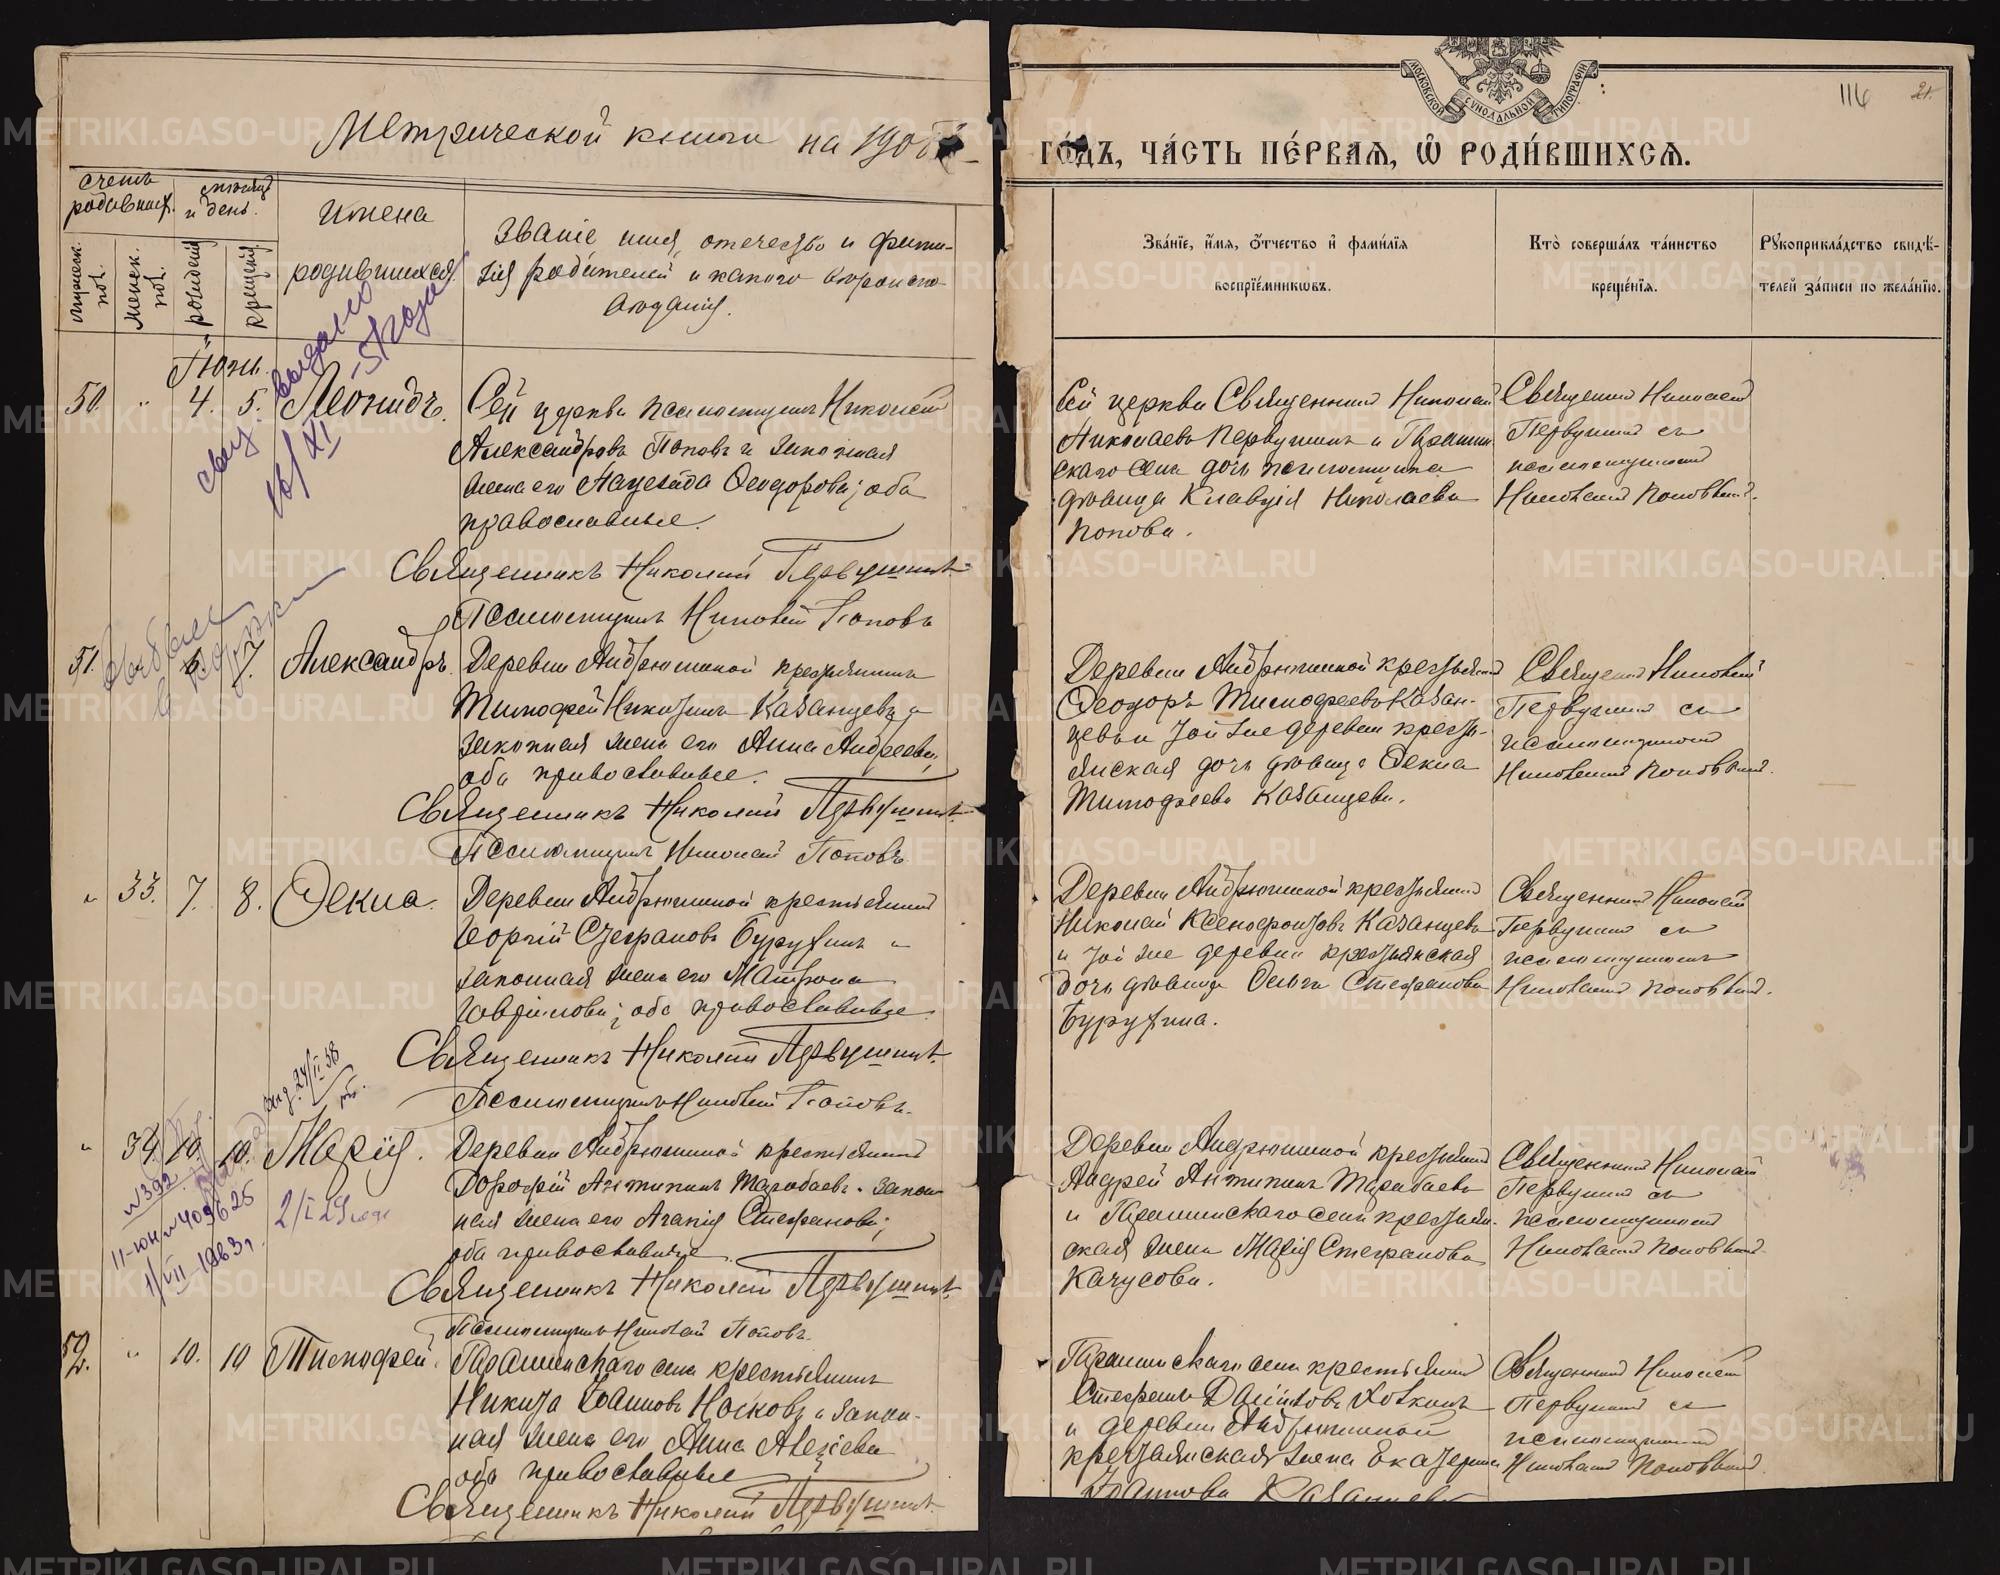 Метрической книги на 190
годъ, ча́сть пе́рвая, ѡ҆ роди́вшихся.
МОСКОВСКОЙ СѴНОДАЛЬНОЙ ТИПОГРАФІИ
116
21.
счетъ родивших.
мѣсяцъ и день.
мужеск. пол.
женск. пол.
рожденія
крещенія
Имена
родившихся
Званіе имя, отечество и фами-
лія родителей и какого вѣроиспо-
вѣданія.
Зва́нїе, и҆́мя, ѻ҆́тчество и҆ фами́лїя
воспрїе́мникѡвъ.
Кто̀ соверша́лъ та́инство
креще́нїя.
Рꙋкоприкла́дство свидѣ́-
телей за́писи по жела́нїю.
Іюнь.
50. " 4. 5. Леонидъ.
Сей церкви псаломщикъ Николай
Александровъ Поповъ и законная
жена его Феодорова; оба
православные.
Священникъ Николай Первушинъ.
Псаломщикъ Николай Поповъ
Сей церкви Священникъ Николай
Николаевъ Первушинъ и
скаго села дочь псаломщика
дѣвица Клавдія Николаева
Попова.
Священникъ Николай
Первушинъ съ
псаломщикомъ
Николаемъ Поповымъ.
свид. выдано
16/XI
51. 7. Александръ.
Деревни Андрюшиной крестьянинъ
Тимофей Никитинъ Казанцевъ и
законная жена его Анна Андреева,
оба православные.
Священникъ Николай Первушинъ.
Псаломщикъ Николай Поповъ
Деревни Андрюшиной крестьянинъ
Феодоръ Тимофеевъ Казан-
цевъ и той же деревни кресть-
янская дочь дѣвица Фекла
Тимофеева Казанцева.
Священникъ Николай
Первушинъ съ
псаломщикомъ
Николаемъ Поповымъ.
" 33. 7. 8. Фекла.
Деревни Андрюшиной крестьянинъ
Георгій Стефановъ Бурухинъ и
законная жена его Матрона
Гаврилова; оба православные.
Священникъ Николай Первушинъ.
Псаломщикъ Николай Поповъ.
Деревни Андрюшиной крестьянинъ
Николай Ксенофонтовъ Казанцевъ
и той же деревни крестьянская
дочь дѣвица Ольга Стефанова
Бурухина.
Священникъ Николай
Первушинъ съ
псаломщикомъ
Николаемъ Поповымъ.
24/II 58
" 34. 10. 10. Марія.
Деревни Андрюшиной крестьянинъ
Дорофей Антипинъ Тарабаевъ. Закон-
ная жена его Агапія Стефанова;
оба православные.
Священникъ Николай Первушинъ.
Псаломщикъ Николай Поповъ.
Деревни Андрюшиной крестьянинъ
Андрей Антипинъ Тарабаевъ
и села крестьян-
ская жена Марія Стефанова
Качусова.
Священникъ Николай
Первушинъ съ
псаломщикомъ
Николаемъ Поповымъ.
N 392
1/VII 1963г.
52. " 10. 10 Тимофей.
села крестьянинъ
Никита Іоанновъ Носковъ и закон-
ная жена его Анна Алексіева
оба православные
Священникъ Николай Первушинъ.
села крестьянинъ
Стефанъ
и деревни Андрюшиной
крестьянская жена Екатерина
Іоаннова Казанцева
Священникъ Николай
Первушинъ съ
псаломщикомъ
Николаемъ Поповымъ.
METRIKI.GASO-URAL.RU